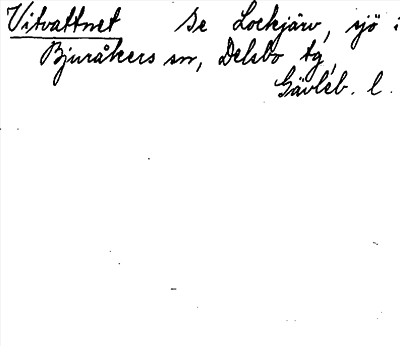 Vitvattnet se Lockjärv, sjö i
Bjuråkers sn, Delsbo tg,
Gävleb. l.